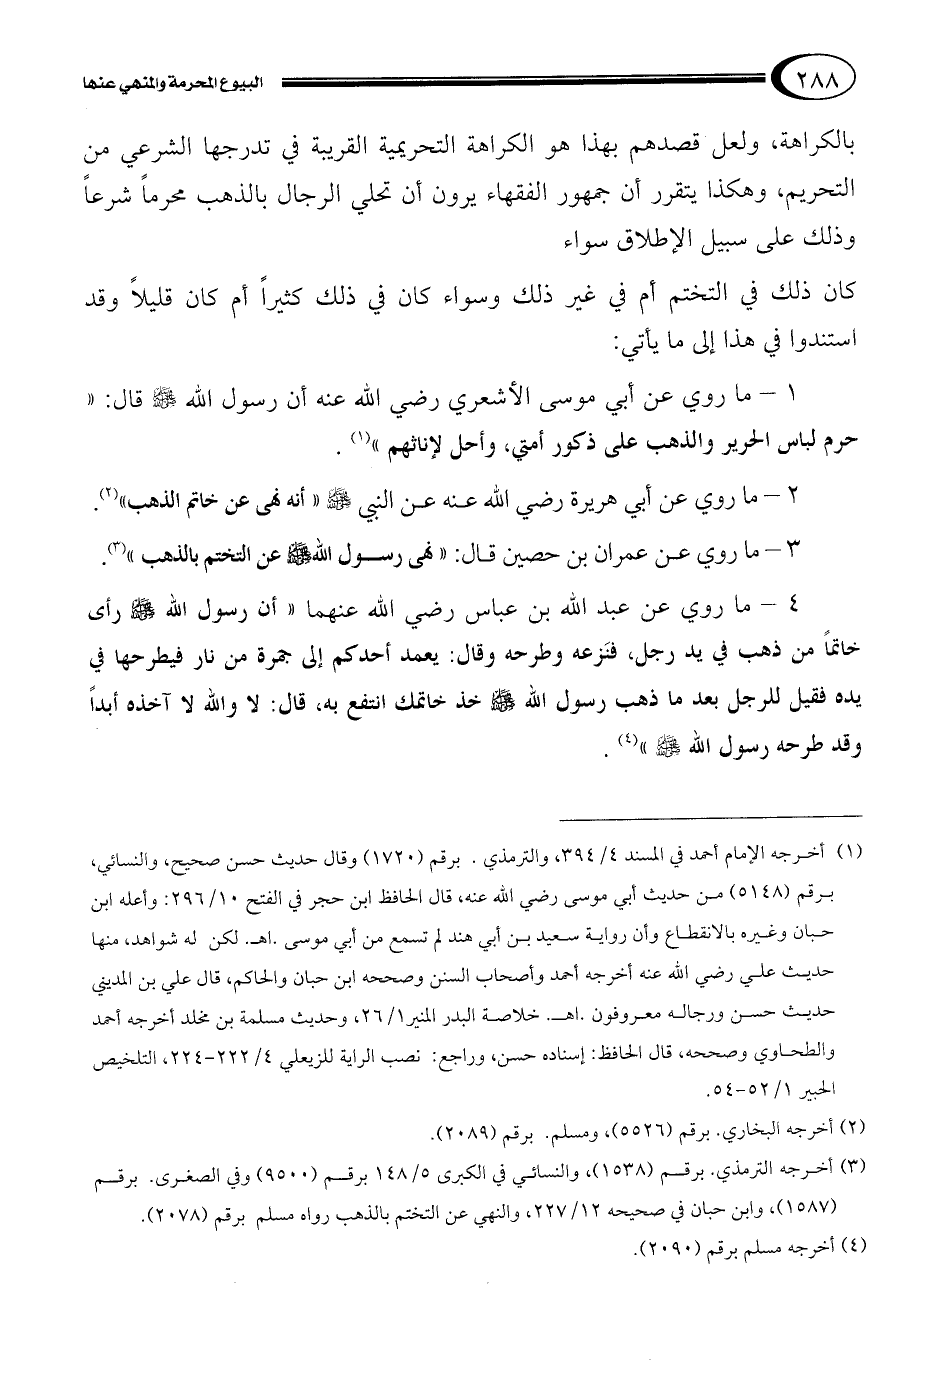 ٢٨٨ البيوع المحرمة والمنهي عنها
بالكراهة، ولعل قصدهم بهذا هو الكراهة التحريمية القريبة في تدرجها الشرعي من
التحريم، وهكذا يتقرر أن جمهور الفقهاء يرون أن تحلي الرجال بالذهب محرماً شرعاً
وذلك على سبيل الإطلاق سواء
كان ذلك في التختم أم في غير ذلك وسواء كان في ذلك كثيراً أم كان قليلاً وقد
استندوا في هذا إلى ما يأتي:
١ – ما روي عن أبي موسى الأشعري رضي الله عنه أن رسول الله ﷺ قال: «
حرم لباس الحرير والذهب على ذكور أمتي، وأحل لإناثهم »(١) .
٢ – ما روي عن أبي هريرة رضي الله عنه عن النبي ﷺ « أنه نهى عن خاتم الذهب»(٢).
٣ – ما روي عن عمران بن حصين قال: « نهى رسول الله ﷺ عن التختم بالذهب »(٣).
٤ – ما روي عن عبد الله بن عباس رضي الله عنهما « أن رسول الله ﷺ رأى
خاتماً من ذهب في يد رجل، فنزعه وطرحه وقال: يعمد أحدكم إلى جمرة من نار فيطرحها في
يده فقيل للرجل بعد ما ذهب رسول الله ﷺ خذ خاتمك انتفع به، قال: لا والله لا آخذه أبداً
وقد طرحه رسول الله ﷺ »(٤) .
(١) أخرجه الإمام أحمد في المسند ٤/ ٣٩٤، والترمذي . برقم (١٧٢٠) وقال حديث حسن صحيح، والنسائي،
برقم (٥١٤٨) من حديث أبي موسى رضي الله عنه، قال الحافظ ابن حجر في الفتح ١٠/ ٢٩٦: وأعله ابن
حبان وغيره بالانقطاع وأن رواية سعيد بن أبي هند لم تسمع من أبي موسى .اهـ. لكن له شواهد، منها
حديث علي رضي الله عنه أخرجه أحمد وأصحاب السنن وصححه ابن حبان والحاكم، قال علي بن المديني
حديث حسن ورجاله معروفون .اهـ. خلاصة البدر المنير١/ ٢٦، وحديث مسلمة بن مخلد أخرجه أحمد
والطحاوي وصححه، قال الحافظ: إسناده حسن، وراجع: نصب الراية للزيعلي ٤/ ٢٢٢–٢٢٤، التلخيص
الحبير ١/ ٥٢–٥٤.
(٢) أخرجه البخاري. برقم (٥٥٢٦)، ومسلم. برقم (٢٠٨٩).
(٣) أخرجه الترمذي. برقم (١٥٣٨)، والنسائي في الكبرى ٥/ ١٤٨ برقم (٩٥٠٠) وفي الصغرى. برقم
(١٥٨٧)، وابن حبان في صحيحه ١٢/ ٢٢٧، والنهي عن التختم بالذهب رواه مسلم برقم (٢٠٧٨).
(٤) أخرجه مسلم برقم (٢٠٩٠).